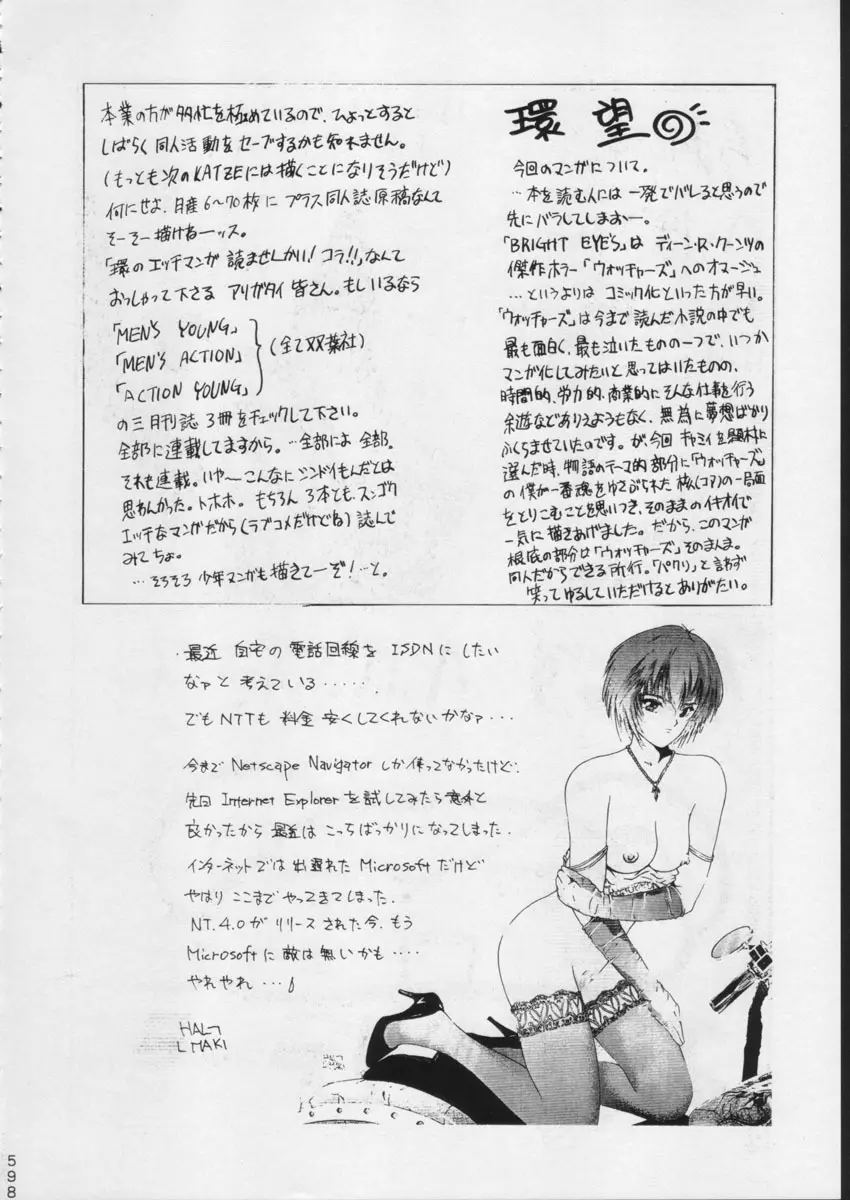 環 望
今回のマンガについて。
…本を読む人には一発でバレると思うので
先にバラしてしまおー。
「BRIGHT EYE'S」は ディーン・R・クーンツの
傑作ホラー「ウォッチャーズ」へのオマージュ
…というよりは コミック化といった方が早い。
「ウォッチャーズ」は今まで読んだ小説の中でも
最も面白く、最も泣いたものの一つで、いつか
マンガ化してみたいと思ってはいたものの、
時間的、労力的、商業的にそんな仕事を行う
余遊などありえようもなく、無為に夢想ばかり
ふくらませていたのです。が、今回 キャミィを題材に
選んだ時、物語のテーマ的部分に「ウォッチャーズ」
の僕が一番魂をゆさぶられた核(コア)の一局面
をとりこむことを思いつき、そのままのイキオイで
一気に描きあげました。だから、このマンガ
根底の部分は「ウォッチャーズ」そのまんま。
同人だからできる所行。「パクリ」と言わず
笑ってゆるしていただけるとありがたい。
本業の方が多忙を極めているので、ひょっとすると
しばらく同人活動をセーブするかも知れません。
(もっとも次のKATZEには描くことになりそうだけど)
何にせよ、月産6〜70枚に プラス同人誌原稿なんて
そーそー描けねーッス。
「環のエッチマンガが 読ませんかい!コラ!!」なんて
おっしゃって下さる アリガタイ 皆さん。もしいるなら
「MEN'S YOUNG」
「MEN'S ACTION」 (全て双葉社)
「ACTION YOUNG」
の三月刊誌 3冊をチェックして下さい。
全部に連載してますから。…全部によ 全部。
それも連載。いや〜こんなにシンドイもんだとは
思わんかった。トホホ。もちろん 3本とも、スンゴク
エッチなマンガだから(ラブコメだけどね)読んで
みてちょ。
…そろそろ 少年マンガも描きてーぞ!…と。
・最近 自宅の 電話回線を ISDNに したい
なァと 考えている・・・・・.
でも NTTも 料金 安くしてくれないかなァ・・・
今まで Netscape Navigator しか使ってなかったけど、
先日 Internet Explorer を試してみたら 意外と
良かったから 最近は こっちばっかりになってしまった.
インターネットでは 出遅れた Microsoft だけど
やはり ここまで やってきてしまった.
NT.4.0が リリース された今、もう
Microsoftに 敵は無いかも・・・・
やれやれ・・・
HAL
MAKI
598